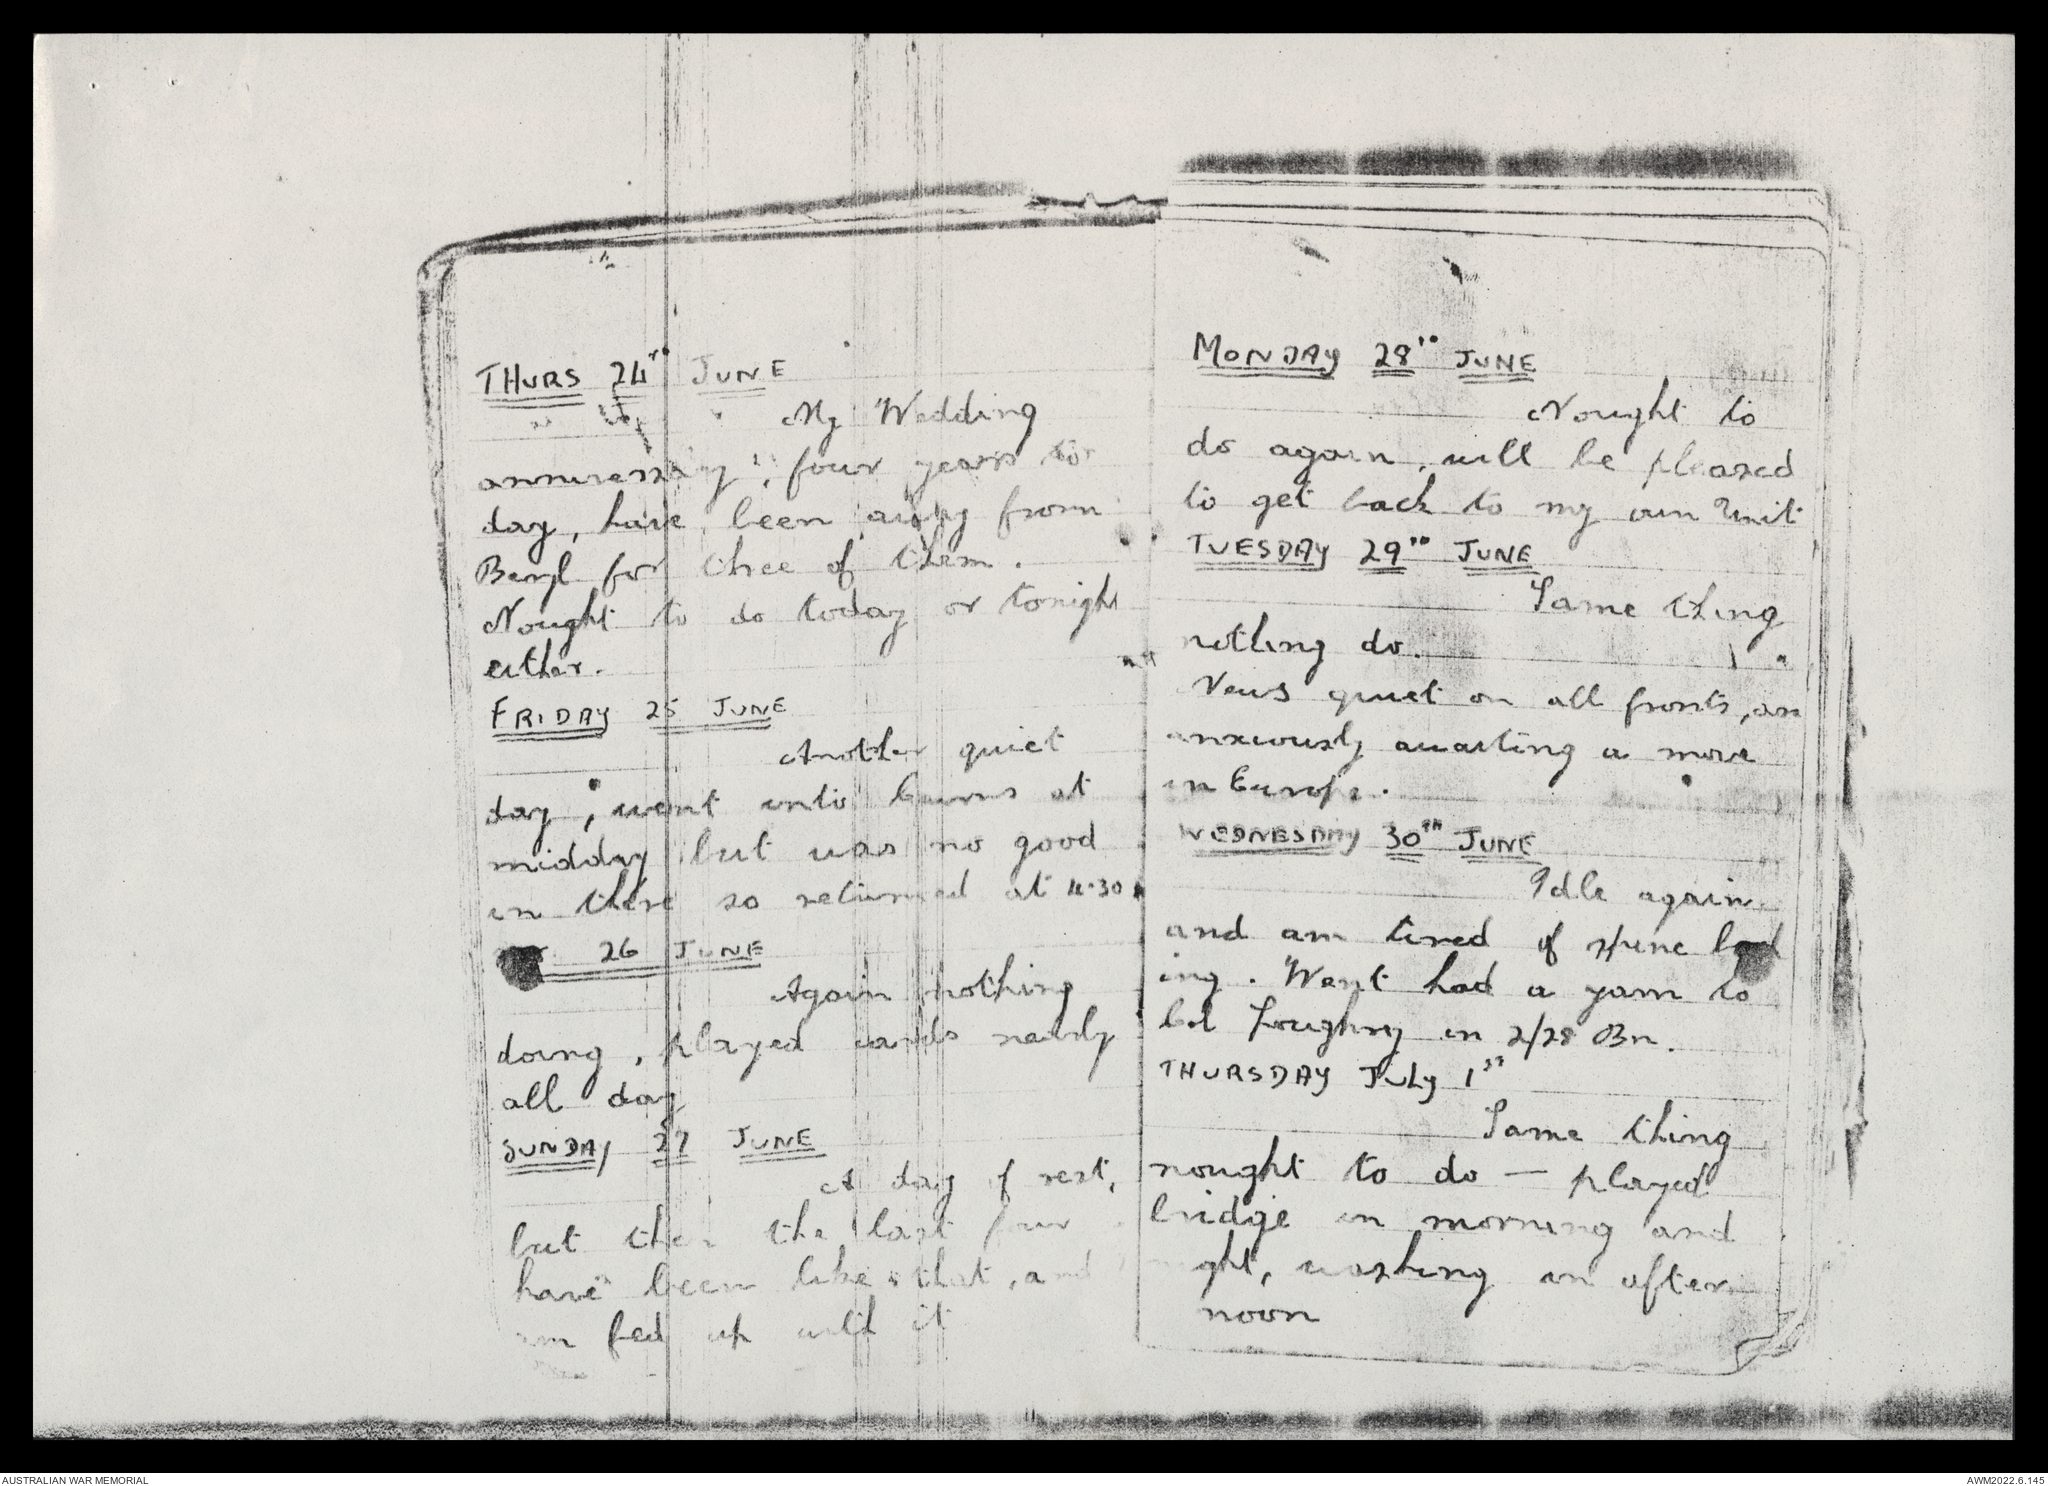 THURS 24TH JUNE
My Wedding
anniversary, four years to-
day, have been away from
Beryl for three of them.
Nought to do today or tonight
either.
FRIDAY 25 JUNE
Another quiet
day, went into Cairns at
midday but was no good
in there so returned at 4.30
26 JUNE
Again nothing
doing, played cards nearly
all day
SUNDAY 27 JUNE
A day of rest,
but then the last four
have been like that, and
am fed up with it
MONDAY 28TH JUNE
Nought to
do again, will be pleased
to get back to my own Unit
TUESDAY 29TH JUNE
Same thing
nothing do.
News quiet on all fronts, am
anxiously awaiting a move
in Europe.
WEDNESDAY 30TH JUNE
Idle again
and am tired of spine bash
ing. Went had a yarn to
Loughry in 2/28 Bn.
THURSDAY JULY 1ST
Same thing
nought to do — played
bridge in morning and
night, washing in after
noon
AUSTRALIAN WAR MEMORIAL
AWM2022.6.145